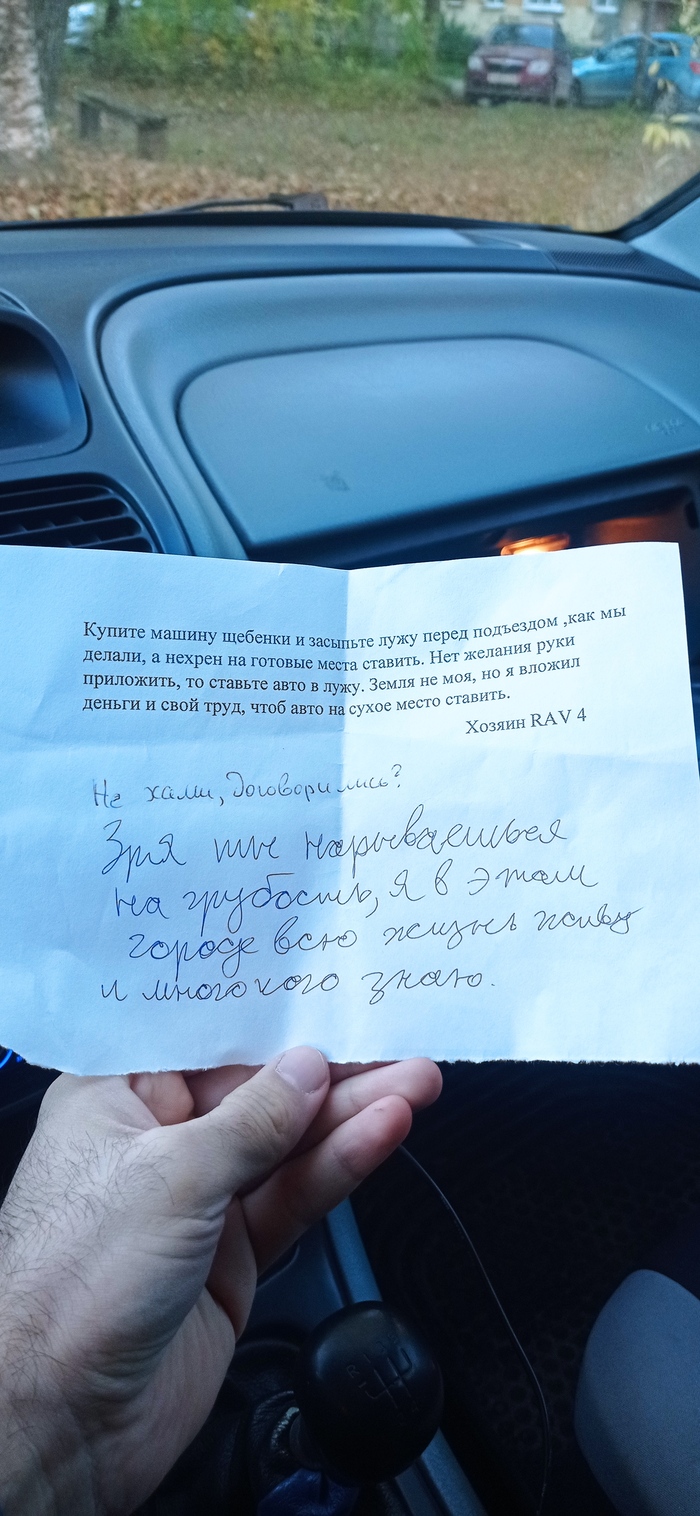 Купите машину щебенки и засыпьте лужу перед подъездом ,как мы
делали, а нехрен на готовые места ставить. Нет желания руки
приложить, то ставьте авто в лужу. Земля не моя, но я вложил
деньги и свой труд, чтоб авто на сухое место ставить.
Хозяин RAV 4
Не хами, договорились?
Зря ты нарываешься
на грубость, я в этом
городе всю жизнь живу
и много кого знаю.